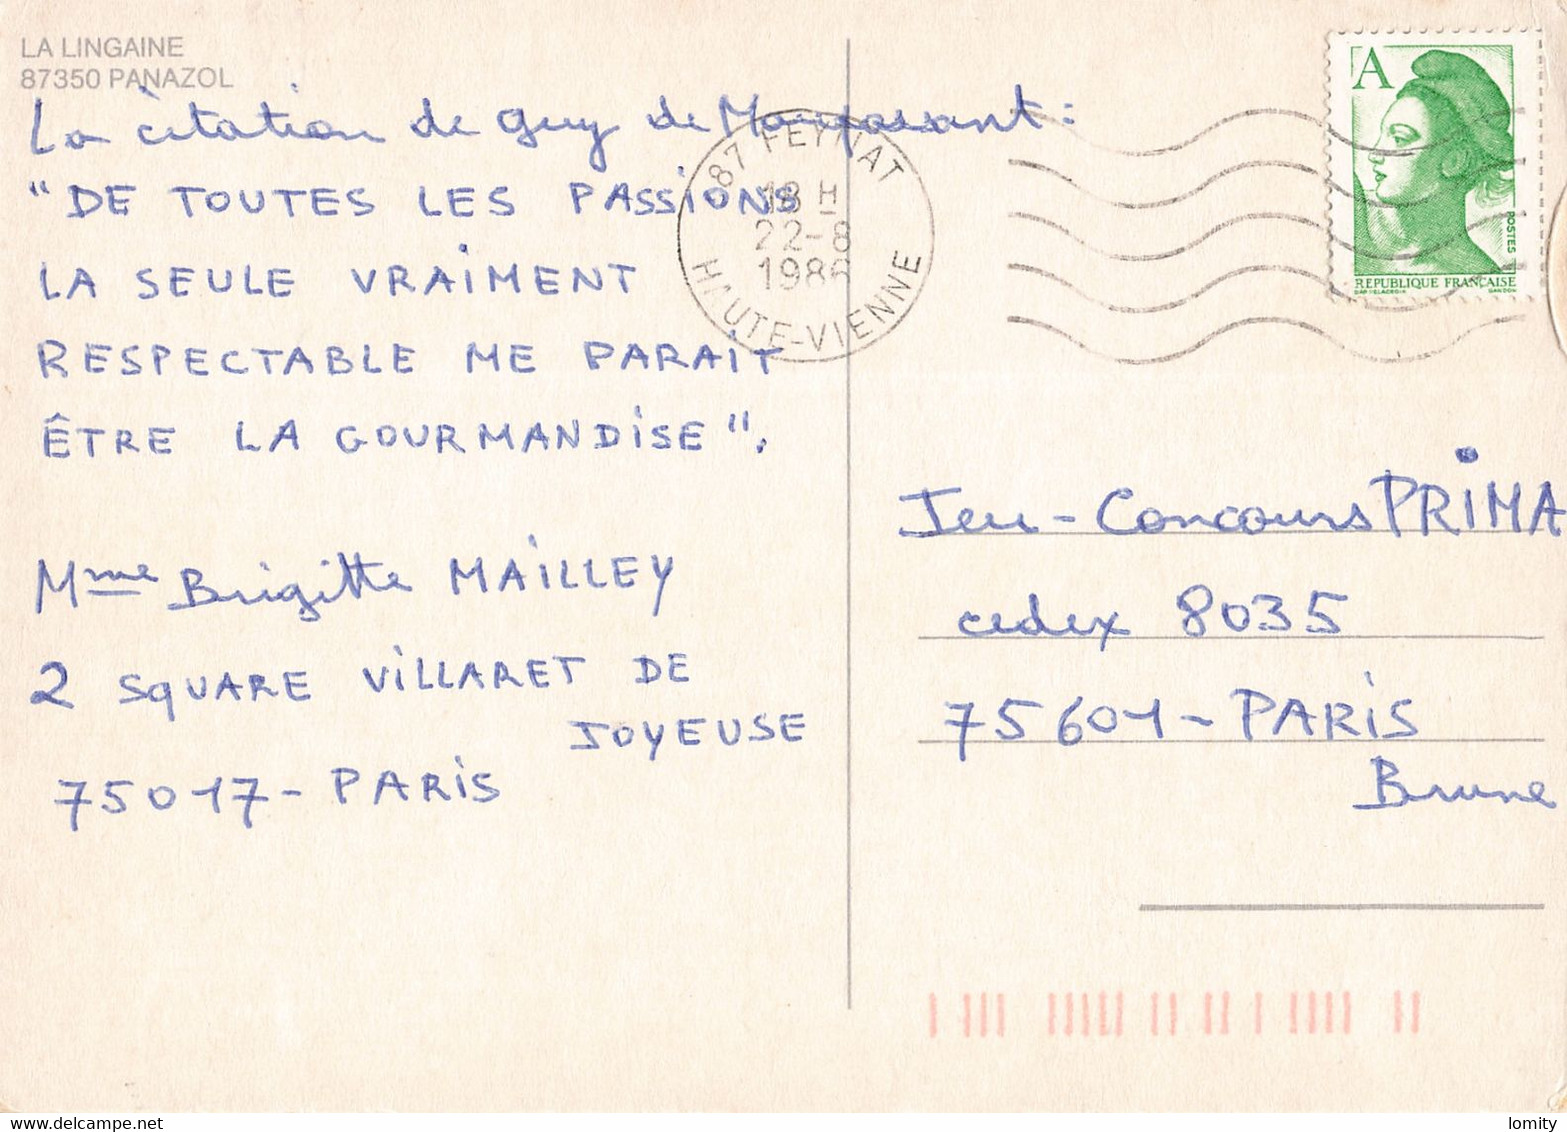 LA LINGAINE
87350 PANAZOL
La citation de Guy de Maupassant :
"DE TOUTES LES PASSIONS
LA SEULE VRAIMENT
RESPECTABLE ME PARAIT
ÊTRE LA GOURMANDISE".
Mme Brigitte MAILLEY
2 SQUARE VILLARET DE
JOYEUSE
75017 - PARIS
87 FEYTIAT
18 H
22-8
1986
HAUTE-VIENNE
A
POSTES
REPUBLIQUE FRANÇAISE
DAP. DELACROIX GANDON
Jeu - Concours PRIMA
cedex 8035
75601 - PARIS
Brune
lomity